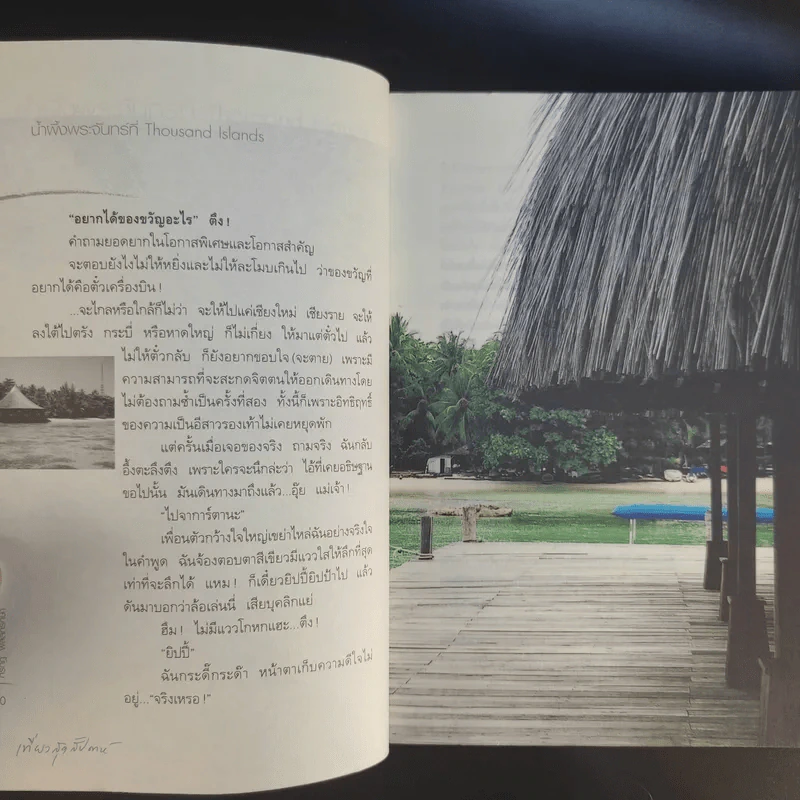 น้ำผึ้งพระจันทร์ที่ Thousand Islands
“อยากได้ของขวัญอะไร” ตึง !
คำถามยอดยากในโอกาสพิเศษและโอกาสสำคัญ
จะตอบยังไงไม่ให้หยิ่งและไม่ให้ละโมบเกินไป ว่าของขวัญที่
อยากได้คือตั๋วเครื่องบิน !
...จะไกลหรือใกล้ก็ไม่ว่า จะให้ไปแค่เชียงใหม่ เชียงราย จะให้
ลงใต้ไปตรัง กระบี่ หรือหาดใหญ่ ก็ไม่เกี่ยง ให้มาแต่ตั๋วไป แล้ว
ไม่ให้ตั๋วกลับ ก็ยังอยากขอบใจ (จะตาย) เพราะมี
ความสามารถที่จะสะกดจิตตนให้ออกเดินทางโดย
ไม่ต้องถามซ้ำเป็นครั้งที่สอง ทั้งนี้ก็เพราะอิทธิฤทธิ์
ของความเป็นอีสาวรองเท้าไม่เคยหยุดพัก
แต่ครั้นเมื่อเจอของจริง ถามจริง ฉันกลับ
อึ้งตะลึงตึง เพราะใครจะนึกล่ะว่า ไอ้ที่เคยอธิษฐาน
ขอไปนั้น มันเดินทางมาถึงแล้ว...อุ๊ย แม่เจ้า !
“ไปจาการ์ตานะ”
เพื่อนตัวกว้างใจใหญ่เขย่าไหล่ฉันอย่างจริงใจ
ในคำพูด ฉันจ้องตอบตาสีเขียวมีแววใสให้ลึกที่สุด
เท่าที่จะลึกได้ แหม ! ก็เดี๋ยวยิปปี้ยิปป้าไป แล้ว
ดันมาบอกว่าล้อเล่นนี่ เสียบุคลิกแย่
ฮึม ! ไม่มีแววโกหกแฮะ...ตึง !
“ยิปปี้”
ฉันกระดี๊กระด๊า หน้าตาเก็บความดีใจไม่
อยู่...“จริงเหรอ !”
เที่ยวสุดสัปดาห์